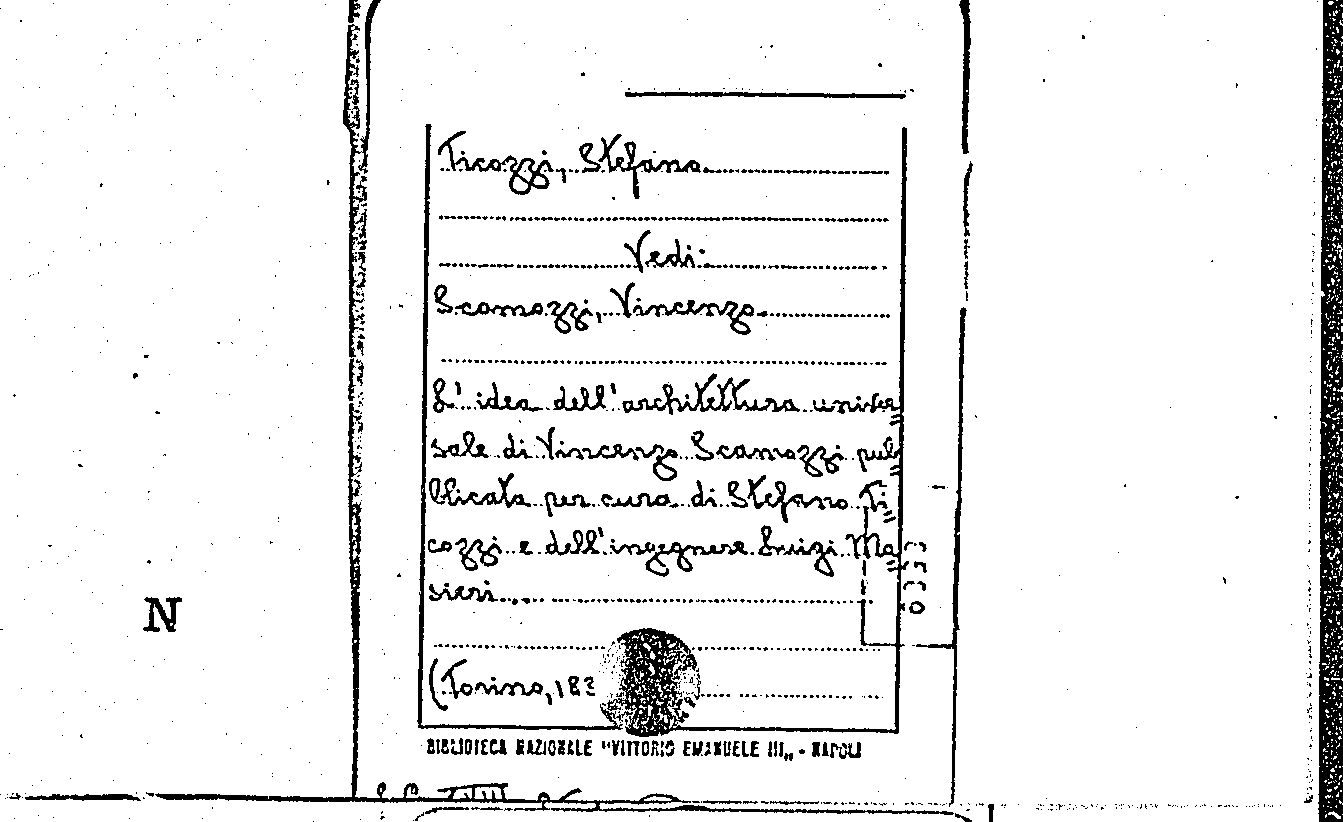 Ticozzi, Stefano.
Vedi:
Scamozzi, Vincenzo.
L' idea dell'architettura univer=
sale di Vincenzo Scamozzi pub=
blicata per cura di Stefano Ti=
cozzi e dell'ingegnere Luigi Ma=
sieri...
(Torino, 183
BIBLIOTECA NAZIONALE "VITTORIO EMANUELE III„ - NAPOLI
N